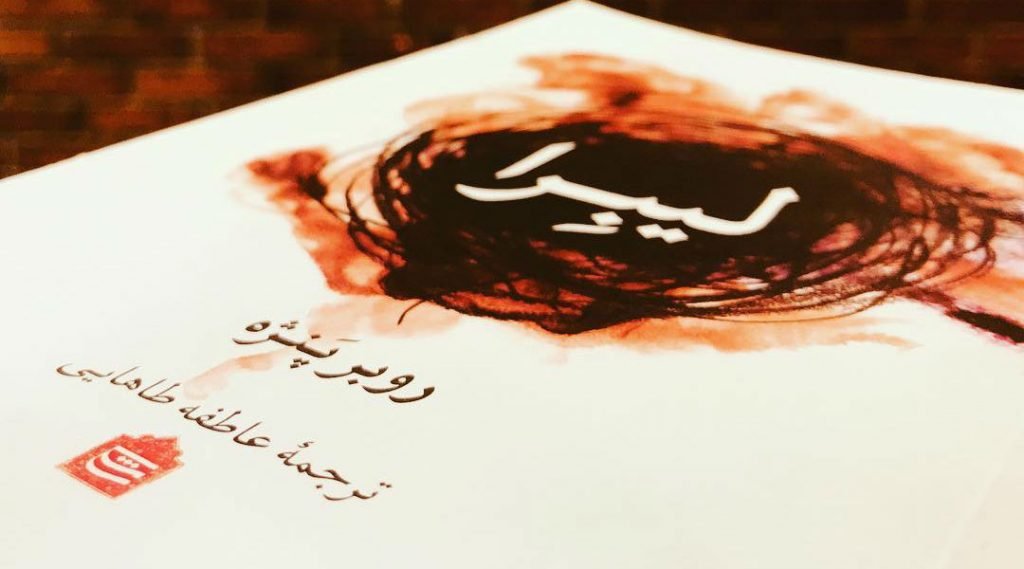 لیبرا
روبر پَنژه
ترجمهٔ عاطفه طاهایی